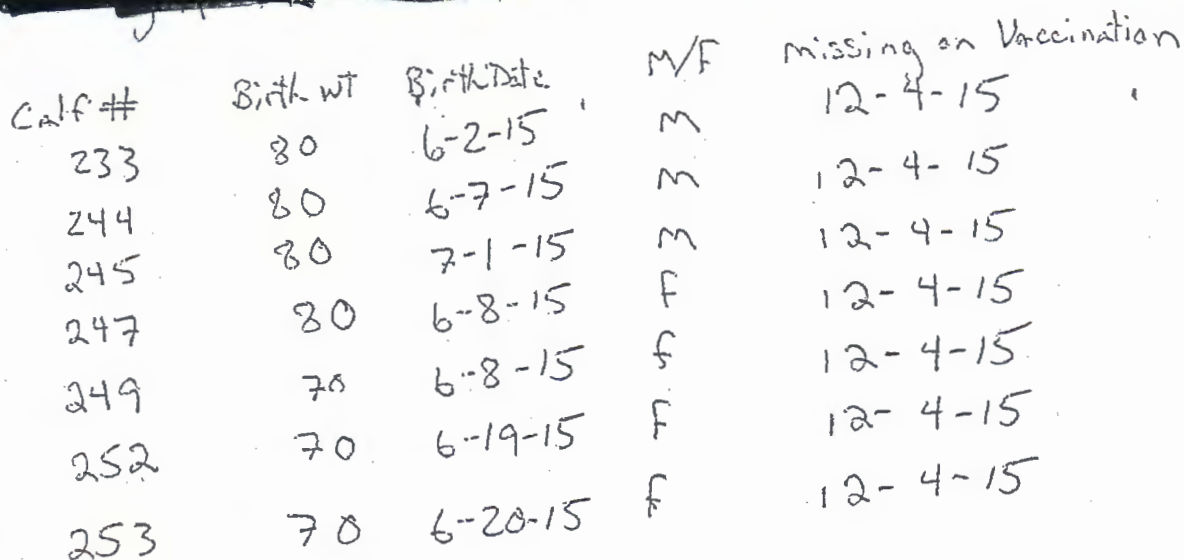 Calf # Birth WT Birth Date M/F missing on Vaccination
233 80 6-2-15 M 12-4-15
244 80 6-7-15 M 12-4-15
245 80 7-1-15 M 12-4-15
247 80 6-8-15 F 12-4-15
249 70 6-8-15 f 12-4-15
252 70 6-19-15 F 12-4-15
253 70 6-20-15 f 12-4-15